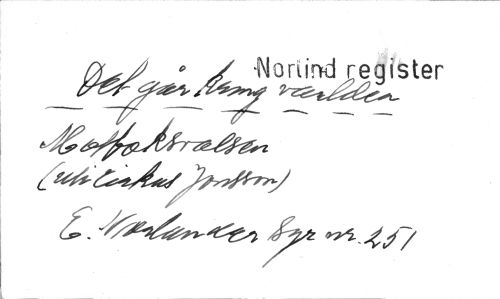 Norlind register
Det går kring världen
Motboksvalsen
(ur Cirkus Jonsson)
E. Norlander Syr nr. 251